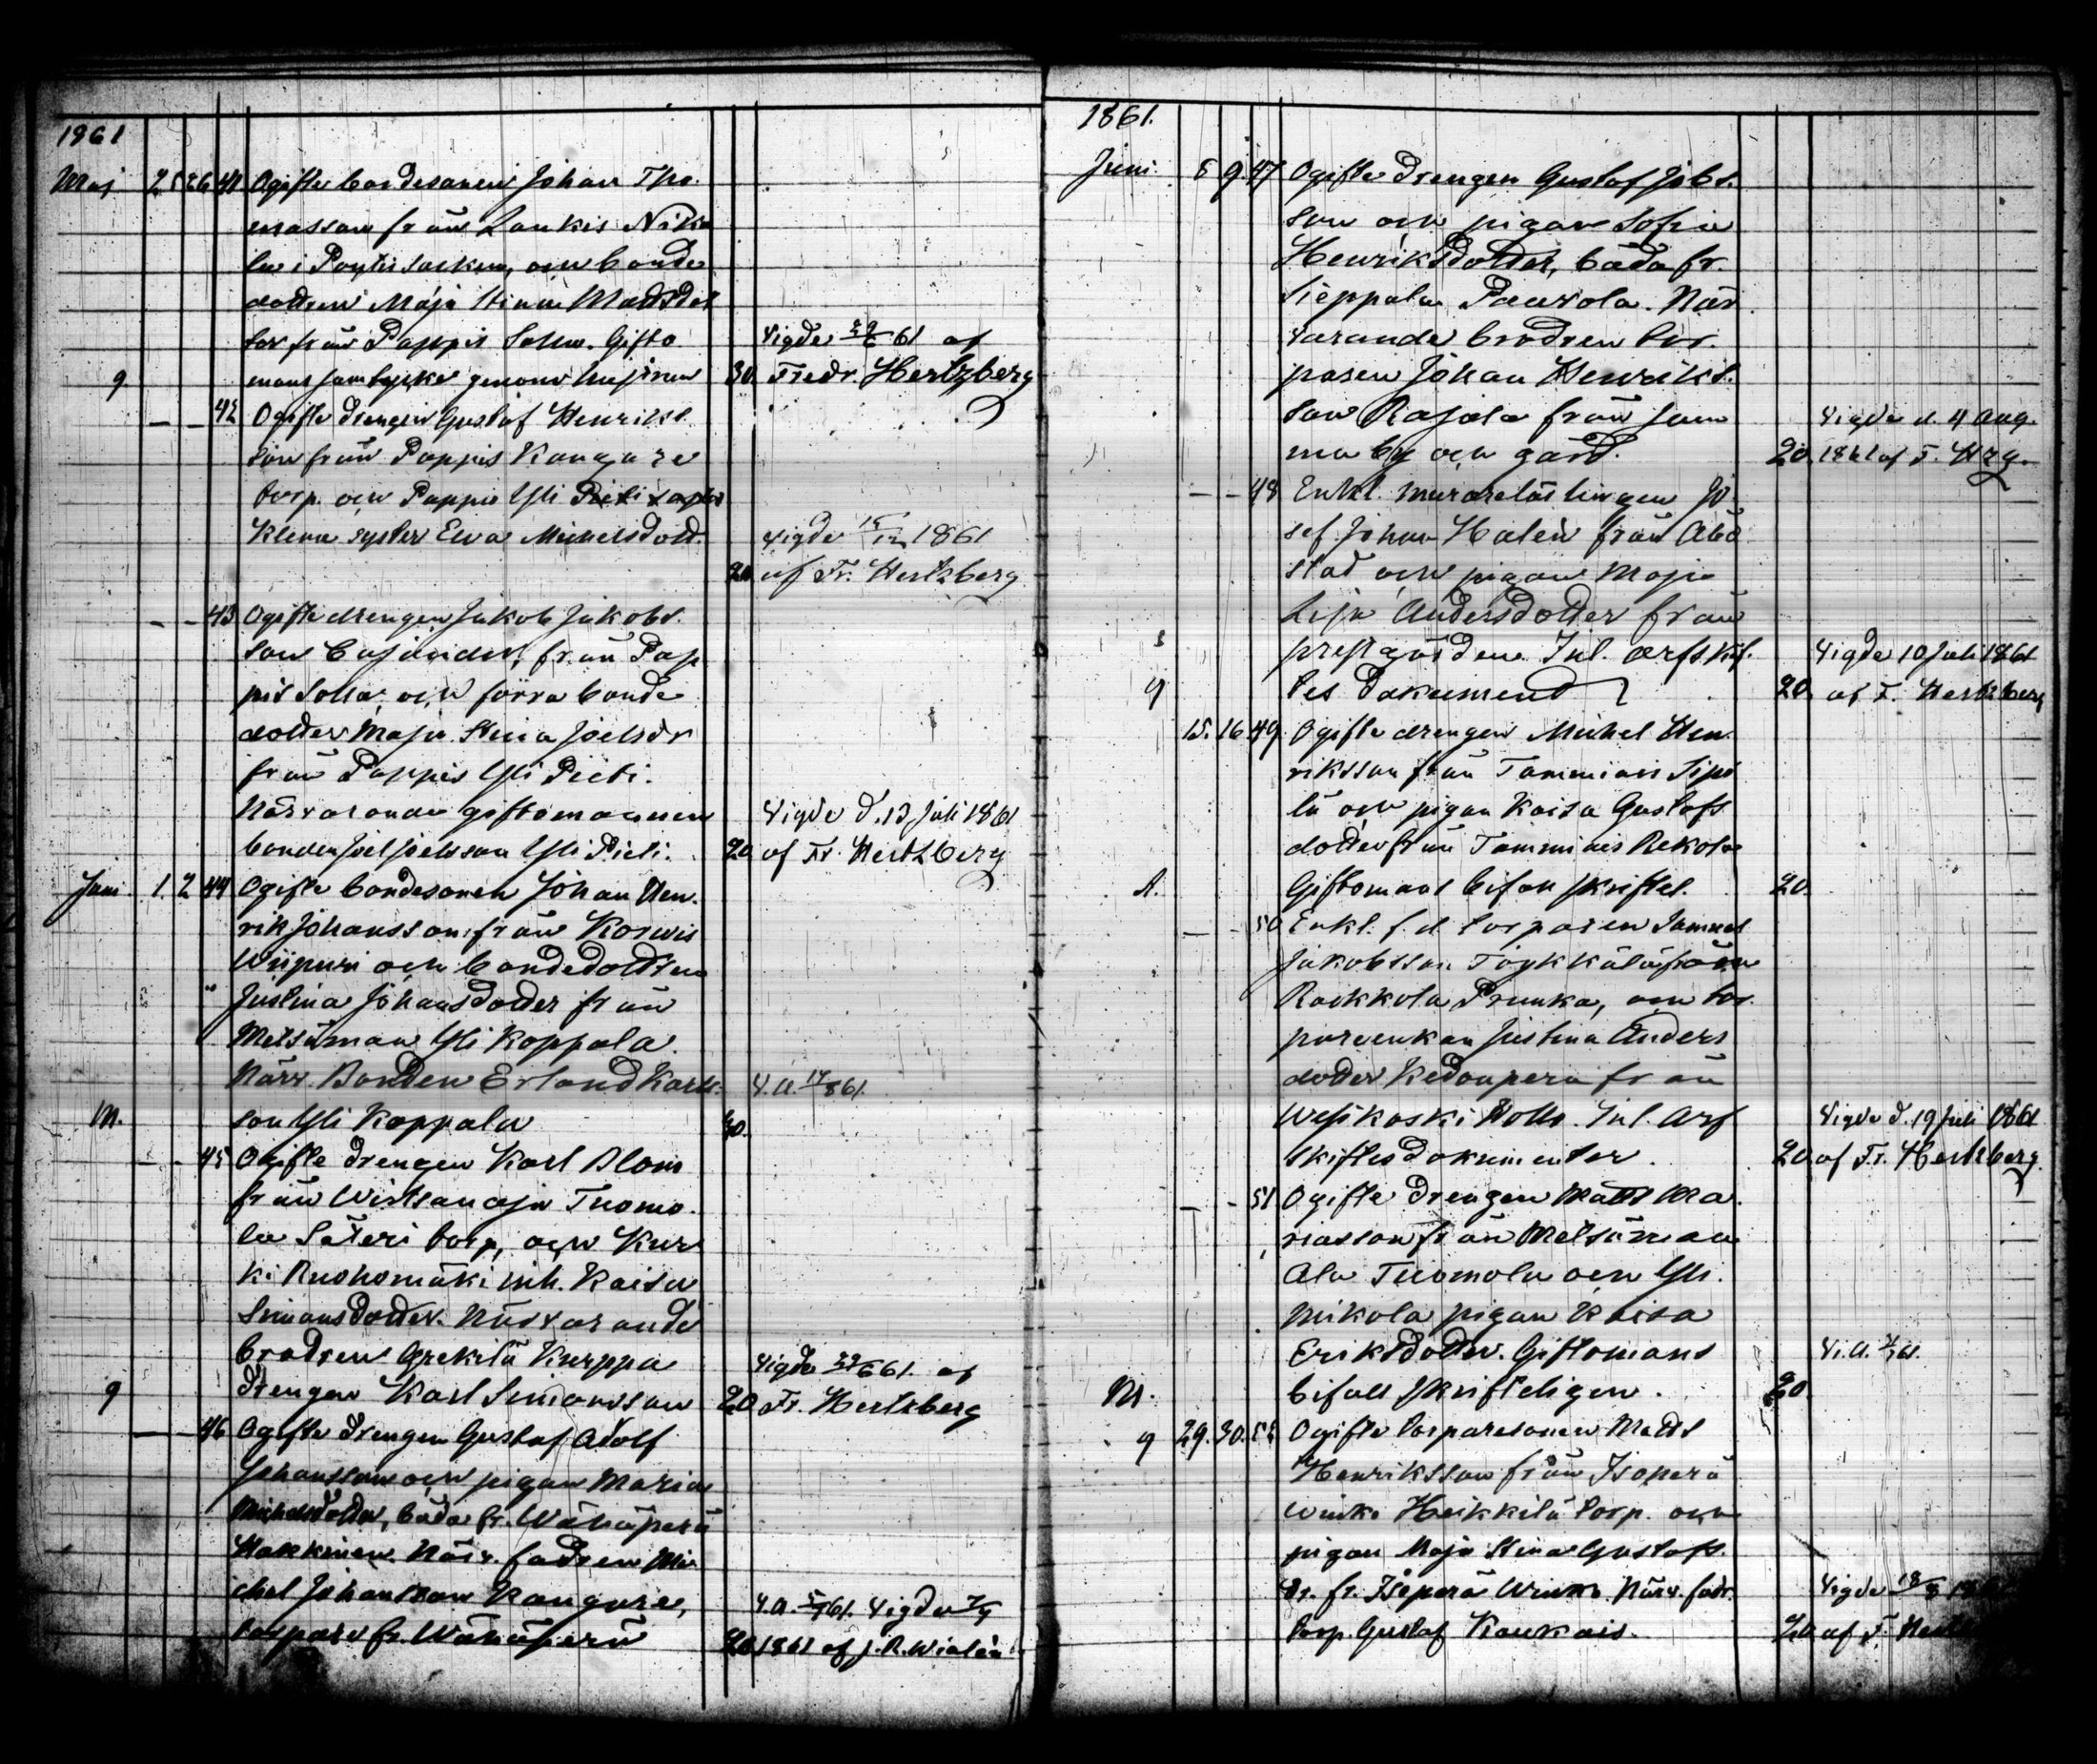 1861
Maj 25 26 41 Ogifte bondesonen Johan Tho-
masson från Laukis Niko
la i Pöytis socken, och bonde
dottren Maja Stina Mattsdot
ter från Pappis Solu. Gifto
mans samtycke genom 30
Vigde 61 af
Fredr. Hertzberg
g
— — 42 Ogifte drengen Gustaf Henriks-
son från Pappis Kangare
torp och Pappis Yli Pieti
Klemu syster Eva Michelsdott.
20
Vigde 1861
af Fr. Hertzberg
— — 43 Ogifte drengen Jakob Jakobs-
son Cajander, från Pap
pis Solla, och förra bonde
dotter Maja Stina Joelsdr
från Pappis Yli Pieti.
Närvarande giftomannen
bonden Joel Joelsson Yli Pieti. 20
Vigde d. 13 Juli 1861
af Fr. Hertzberg
Juni 1. 2 44 Ogifte bondesonen Johan Hen-
rik Johansson från Korwis
Wiipuri och bondedottren
Justina Johansdotter från
Metsämaa Yli Koppala.
Närv. Bonden Erland Karls-
son Yli Koppala 30.
V.A. 61.
M.
— — 45 Ogifte drengen Karl Blom
från Wirtsanoja Tuomo-
la Säteri torp, och Kur
ki Ruohomäki inh. Kaisa
Simonsdotter. Närvarande
brodren Grekilä Kurppa
drengen Karl Simonsson 20
Vigde 61. af
Fr. Hertzberg
g
— — 46 Ogifte drengen Gustaf Adolf
Johansson och pigan Maria
Michelsdotter, båda fr. Wähäperä
Hakkinen. Närv. fadren Mi-
chel Johansson Kangare,
torpare fr. Wähäperä 20
V.A. 61. Vigde
1861 af J. R. Wialén
1861.
Juni. 8 9. 47 Ogifte drengen Gustaf Jobs-
son och pigan Sofia
Henriksdotter, båda fr.
Sieppala Paavola. När
varande brodren tor-
paren Johan Henriks-
son Rajala från sam
ma by och gård. 20.
Vigde d. 4 Aug.
1861 af F. Hzg.
— — 48 Enkl. murarelärlingen Jo
sef Johan Halén från Åbo
stad och pigan Maja
Lisa Andersdotter från
prestgården. Inl. arfskif-
tes dokument 20.
Vigde 10 Juli 1861
af F. Hertzberg
g
15. 16. 49. Ogifte drengen Michel Hen-
riksson från Tammiais Sipi
lä och pigan Kaisa Gustafs
dotter från Tammiais Rekola
Giftomans bifall skriftel. 20.
A.
— — 50 Enkl. f. d. torparen Samuel
Jakobsson Töykkälä från
Raikkola Prunka, och tor-
pareenkan Justina Anders
dotter Kedonperä från
Wesikoski Nolla. Inl. Arf
skiftesdokumenter. 20
Vigde d. 19 Juli 1861
af Fr. Hertzberg
— — 51 Ogifte drengen Matts Ma-
riasson från Metsämaa
Ala Tuomola och Yli
Mikola pigan Kaisa
Eriksdotter. Giftomans
bifall skrifteligen. 20
V.A. 61.
M.
g 29. 30. 52 Ogifte torparesonen Matts
Henriksson från Isoperä
Winko Heikkilä torp. och
pigan Maja Stina Gustafs-
dr. fr. Isoperä Winko. Närv. fadr.
torp. Gustaf Kaukais. 20
Vigde
af F.